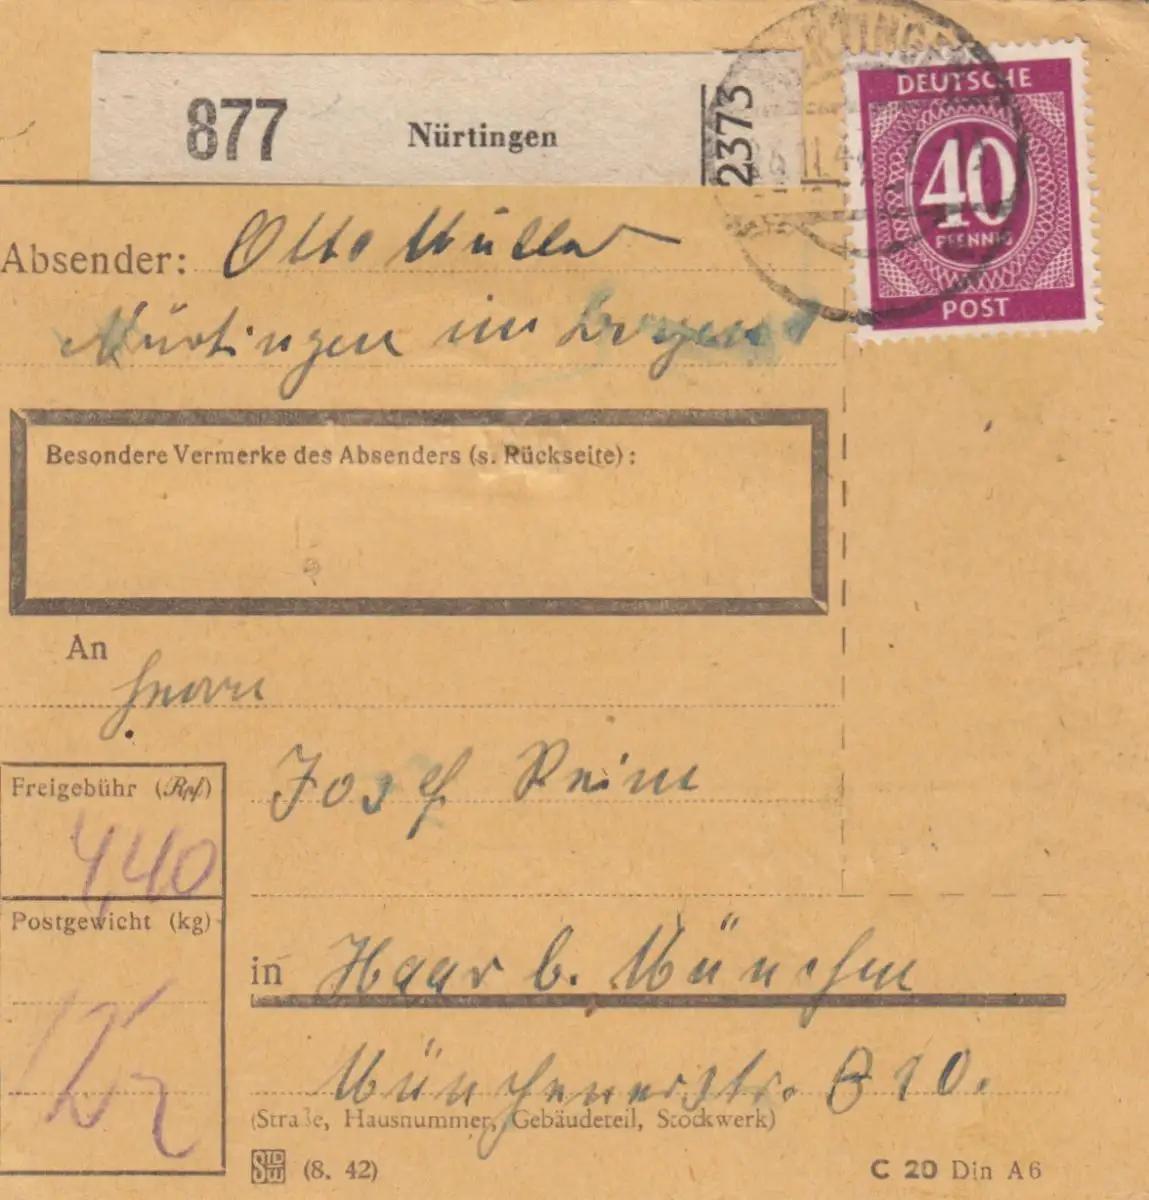 877 Nürtingen 2373
DEUTSCHE
40
PFENNIG
POST
Absender: Otto Müller
Nürtingen im
Besondere Vermerke des Absenders (s. Rückseite):
An
Herrn
Freigebühr (Rpf)
Josef Reim
4,40
Postgewicht (kg)
in Haar b. München
Münchenerstr.
(Straße, Hausnummer, Gebäudeteil, Stockwerk)
(8. 42)
C 20 Din A6